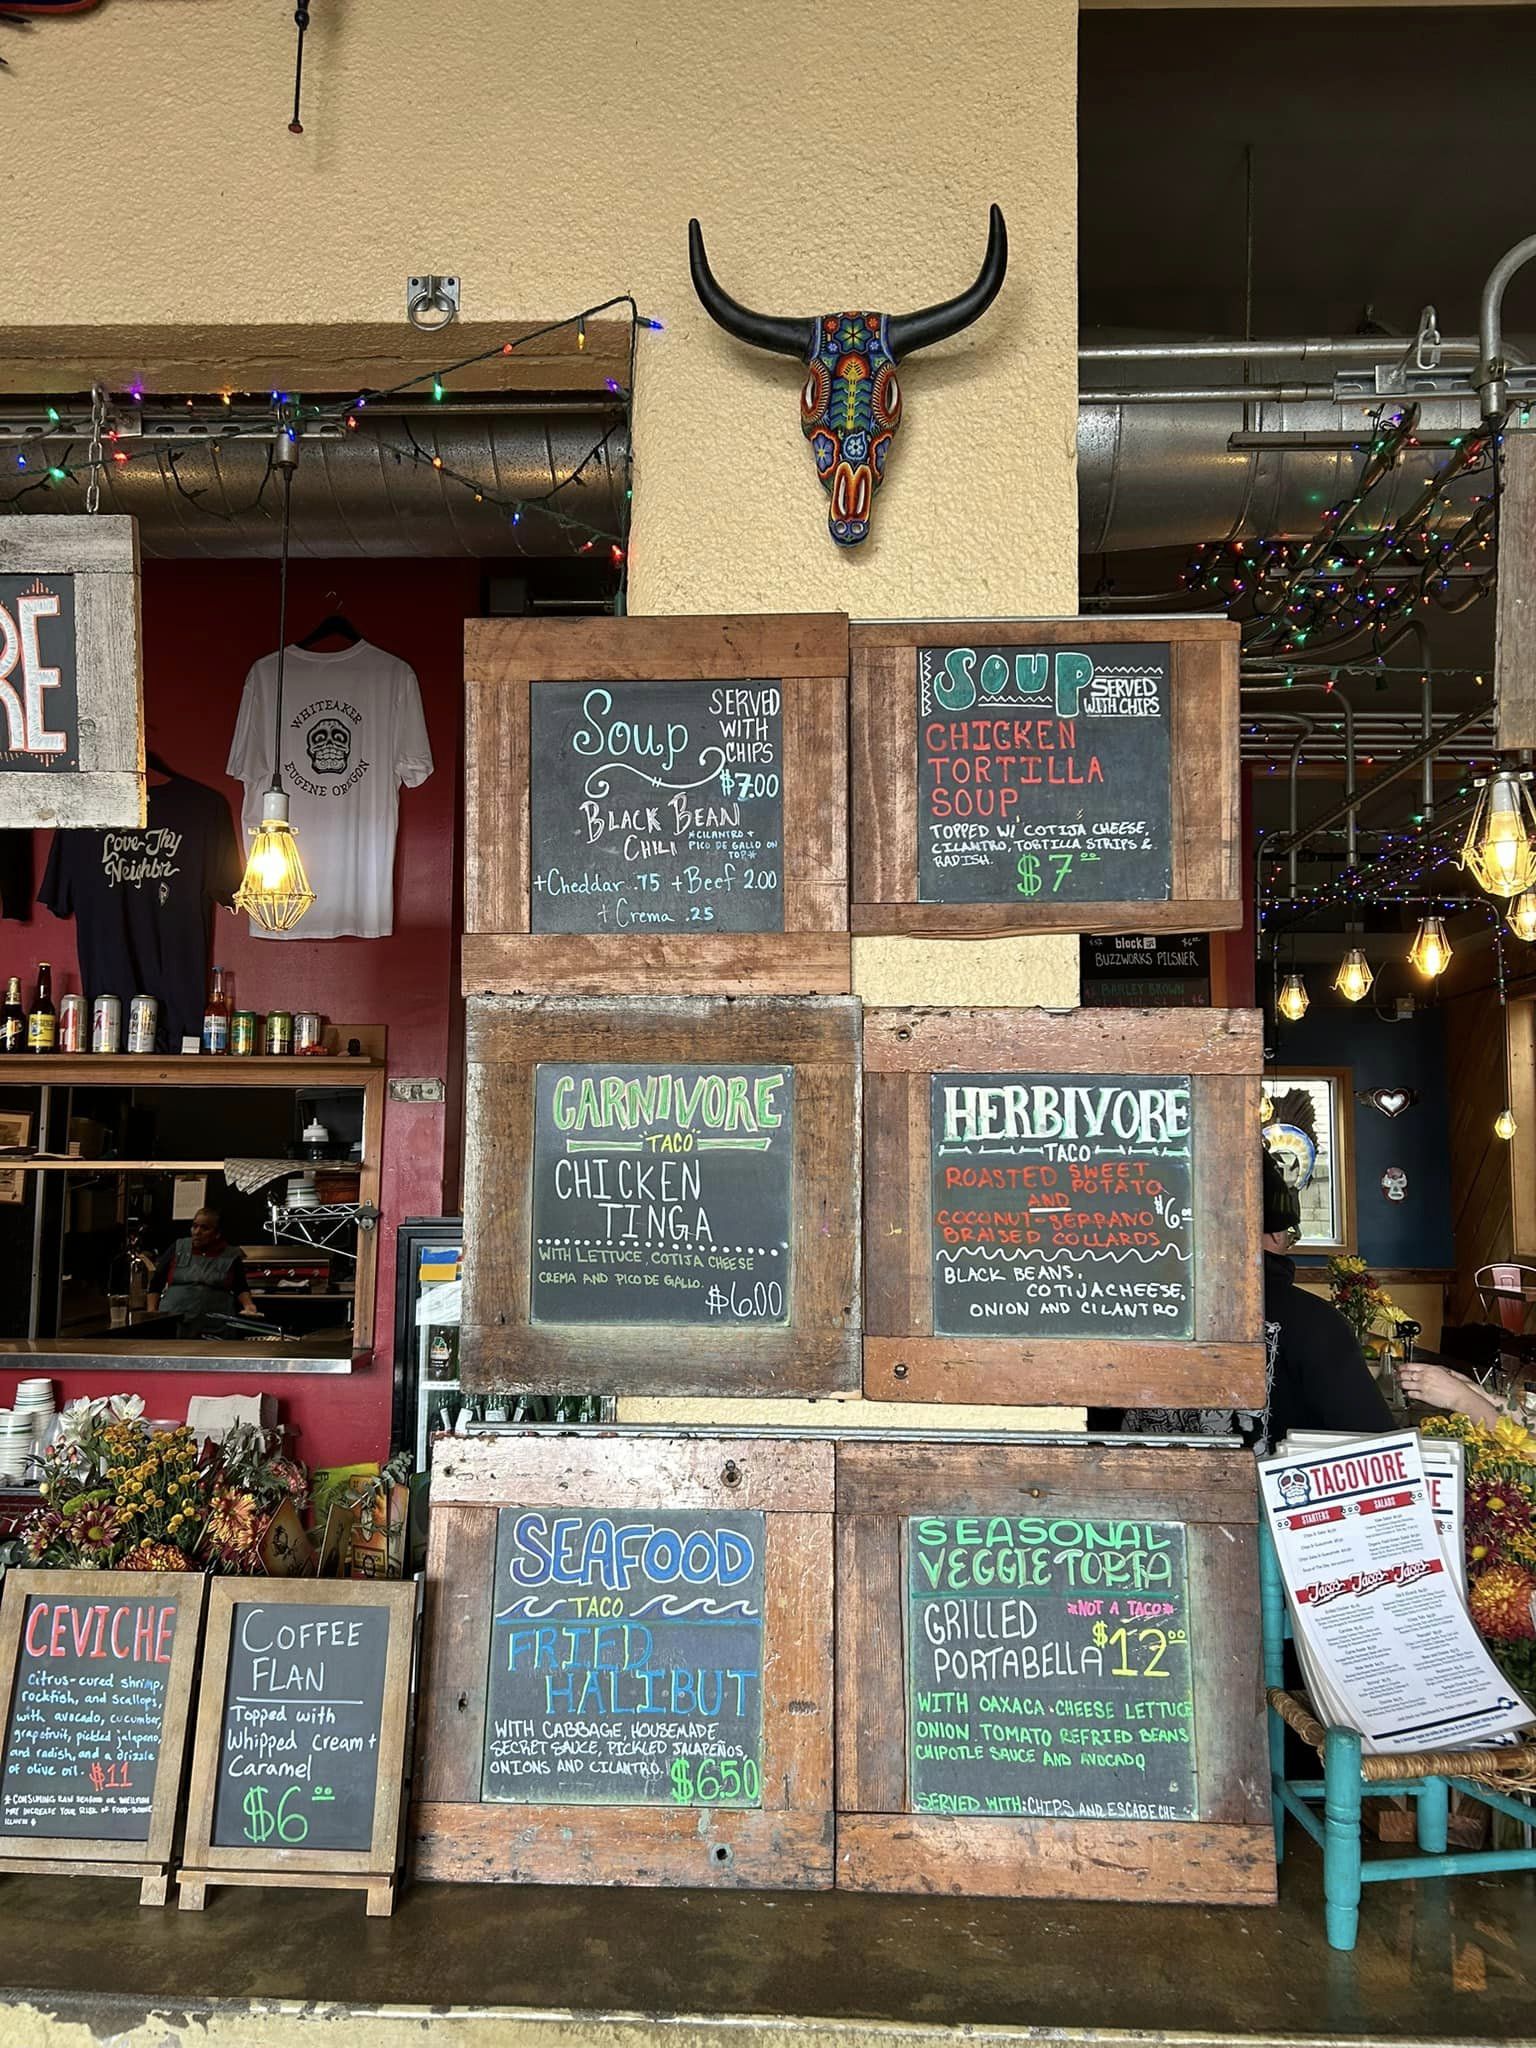 RE
WHITEAKER
EUGENE OREGON
Love Thy
Neighbor
Soup
SERVED
WITH
CHIPS
$7.00
BLACK BEAN
CHILI
*CILANTRO +
PICO DE GALLO ON
TOP*
+Cheddar .75 +Beef 2.00
+Crema .25
SOUP
SERVED
WITH CHIPS
CHICKEN
TORTILLA
SOUP
TOPPED W/ COTIJA CHEESE,
CILANTRO, TORTILLA STRIPS &
RADISH.
$7.00
block 15
BUZZWORKS PILSNER
BARLEY BROWN
CARNIVORE
TACO
CHICKEN
TINGA
WITH LETTUCE, COTIJA CHEESE
CREMA AND PICO DE GALLO.
$6.00
HERBIVORE
TACO
ROASTED SWEET
POTATO
AND
COCONUT-SERRANO
BRAISED COLLARDS
$6.00
BLACK BEANS,
COTIJA CHEESE,
ONION AND CILANTRO
SEAFOOD
TACO
FRIED
HALIBUT
WITH CABBAGE, HOUSEMADE
SECRET SAUCE, PICKLED JALAPEÑOS,
ONIONS AND CILANTRO.
$6.50
SEASONAL
VEGGIE TORTA
*NOT A TACO*
GRILLED
PORTABELLA
$12.00
WITH OAXACA CHEESE LETTUCE
ONION TOMATO REFRIED BEANS
CHIPOTLE SAUCE AND AVOCADO
SERVED WITH: CHIPS AND ESCABECHE
CEVICHE
citrus-cured shrimp,
rockfish, and scallops,
with avocado, cucumber,
grapefruit, pickled jalapeno,
and radish, and a drizzle
of olive oil. $11
* CONSUMING RAW SEAFOOD OR SHELLFISH
MAY INCREASE YOUR RISK OF FOOD-BORNE
ILLNESS *
COFFEE
FLAN
Topped with
Whipped cream +
Caramel
$6.00
TACOVORE
STARTERS
SALADS
Tacos Tacos Tacos